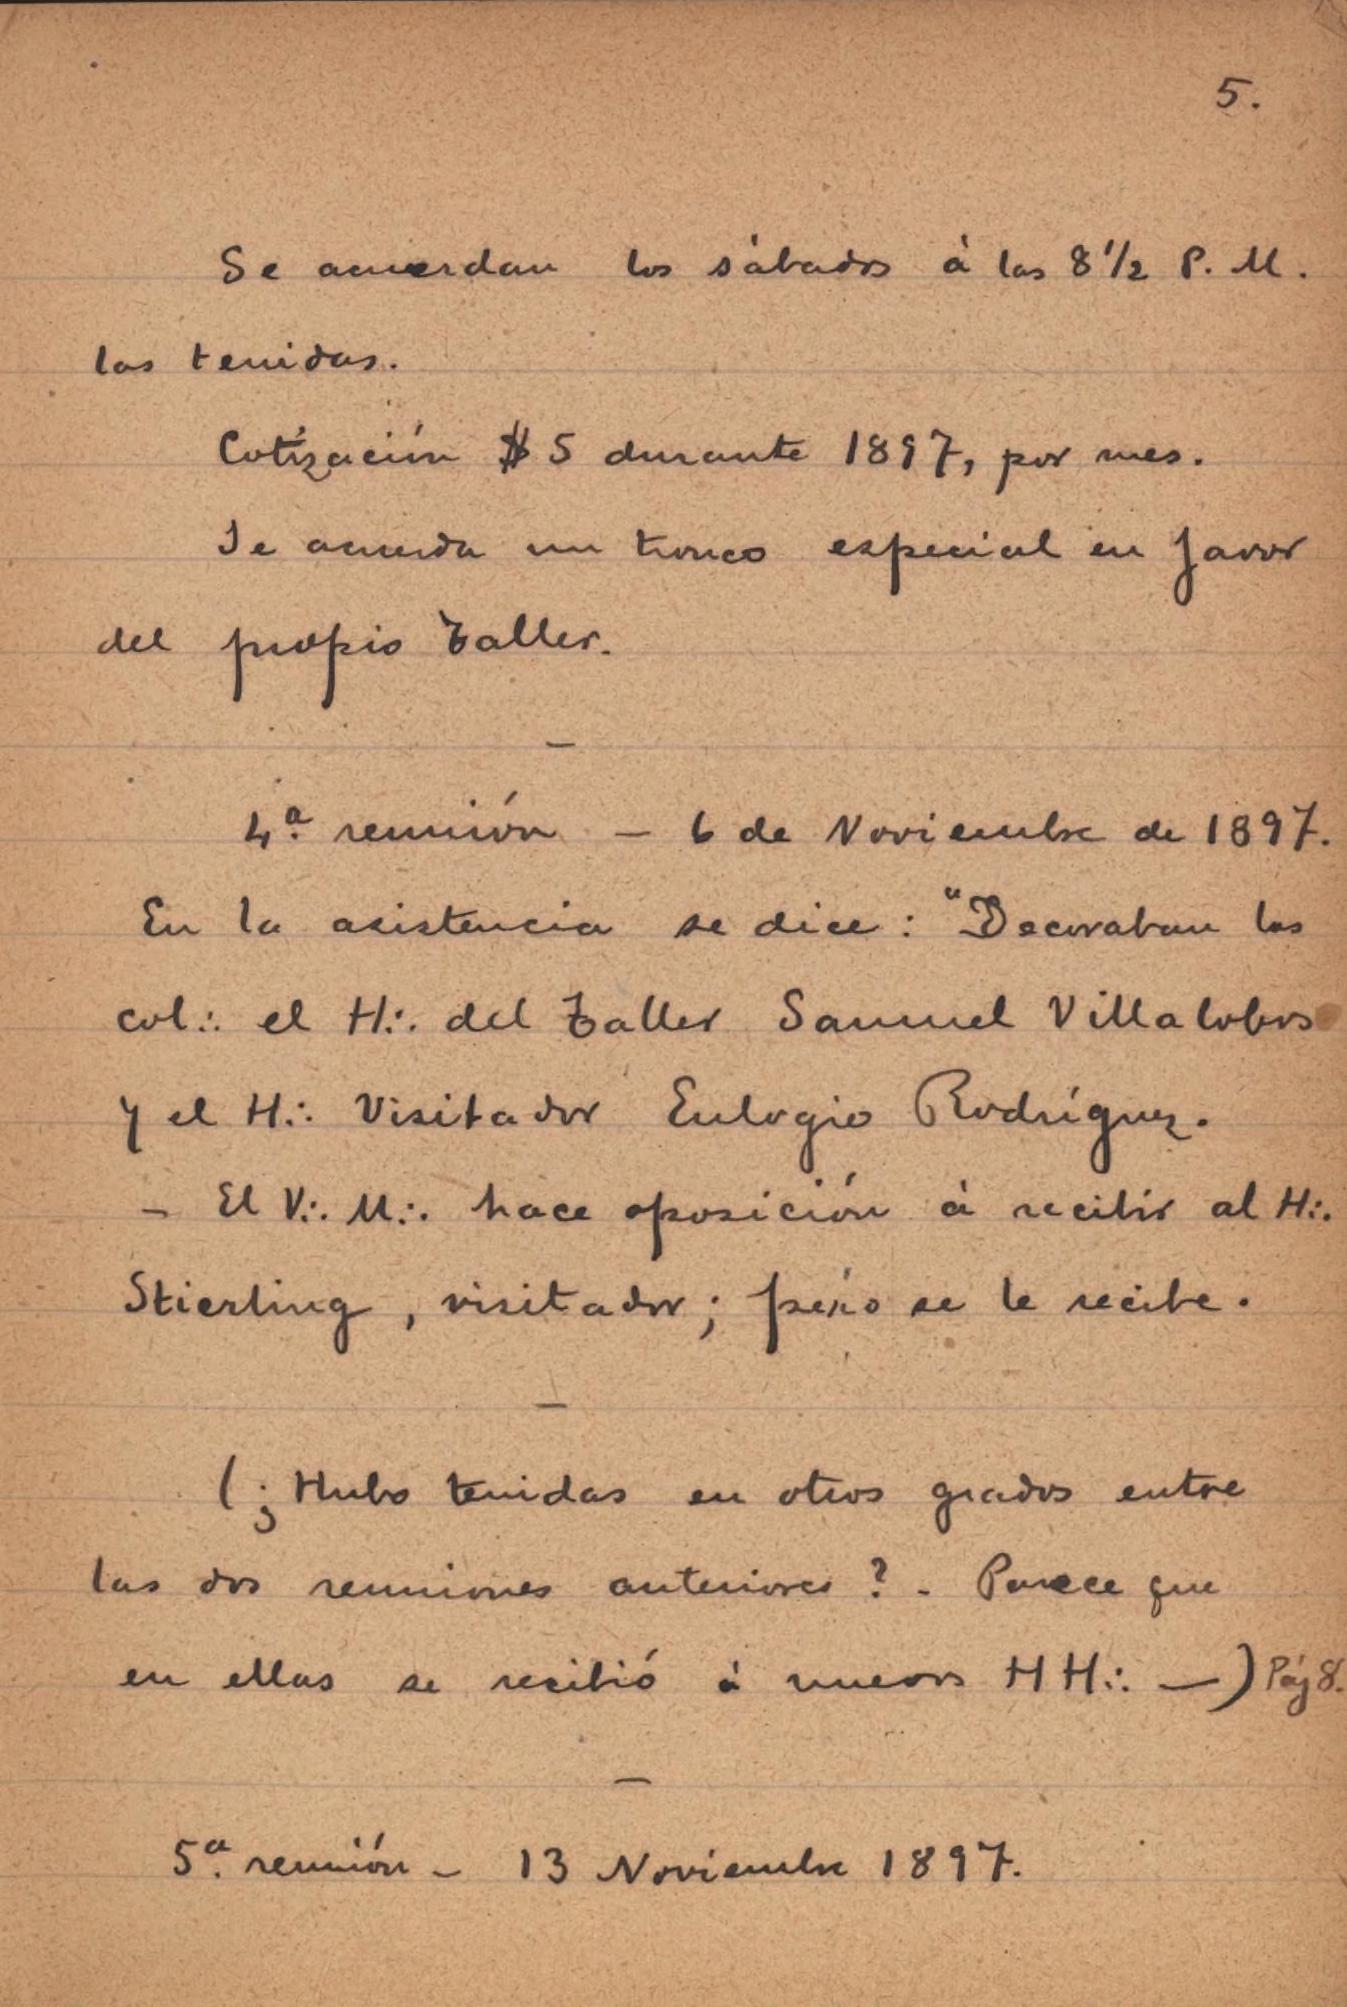 5.
Se acuerdan los sábados à las 8 1/2 P. M.
las tenidas.
Cotización $ 5 durante 1897, por mes.
Se acuerda un tronco especial en favor
del propio Taller.
—
4ª reunión — 6 de Noviembre de 1897.
En la asistencia se dice: "Decoraban las
col∴ el H∴ del Taller Samuel Villalobos
y el H∴ Visitador Eulogio Rodríguez.
— El V∴ M∴ hace oposición à recibir al H∴
Stierling, visitador; pero se le recibe.
—
(¿Hubo tenidas en otros grados entre
las dos reuniones anteriores?. Parece que
en ellas se recibió à nuevos HH∴ —) Páj 8.
—
5ª reunión — 13 Noviembre 1897.